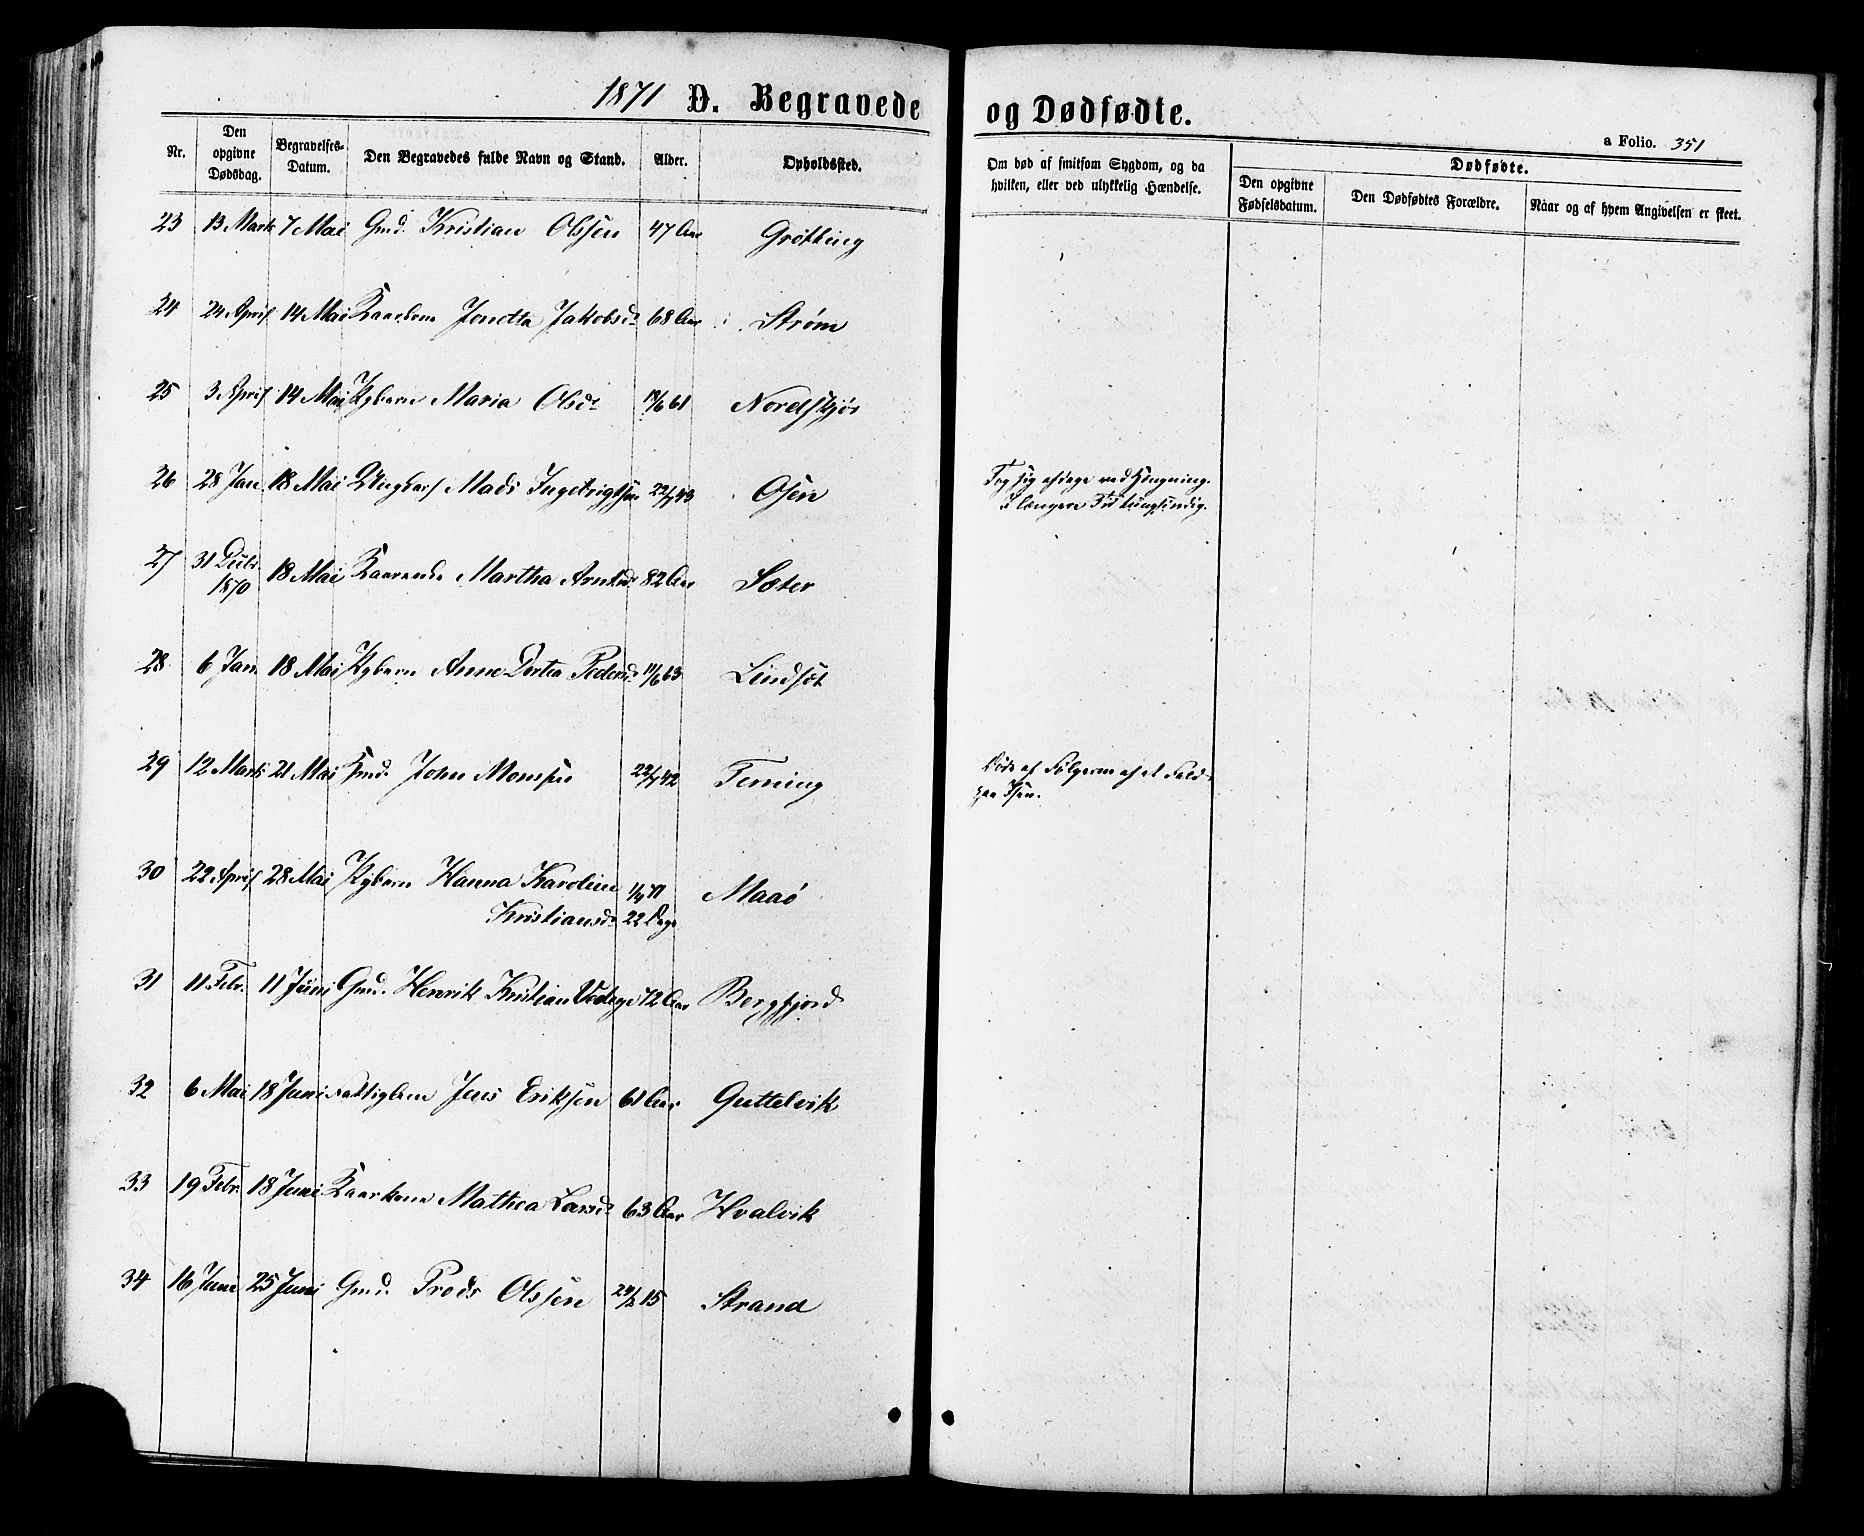 1871 D. Begravede og Dødfødte.
a Folio. 351
Nr.
Den opgivne Dødsdag.
Begravelses-Datum.
Den Begravedes fulde Navn og Stand.
Alder.
Opholdssted.
Om død af smitsom Sygdom, og da hvilken, eller ved ulykkelig Hændelse.
Dødfødte.
Den opgivne Fødselsdatum.
Den Dødfødtes Forældre.
Naar og af hvem Angivelsen er skeet.
23 13 Marts 7 Mai Gmd. Kristian Olssen 47 Aar Grøtting
24 24 April 14 Mai Jonetta Jakobsd. 68 Aar Strøm
25 3 April 14 Mai Pgbarn Maria Olsd. 61 Nordskjør
26 28 Jan. 18 Mai Ungkarl Mads Ingebrigtsen 22/7 43 Osen
Tog sig afdage ved Hængning.
I længere Tid tungsindig.
27 31 Decbr. 18 Mai Martha 82 Aar Sæter
1870
28 6 Jan. 18 Mai Pgbarn Anne Dortea Pedersd. 11/6 63 Lindsøt
29 12 Marts 21 Mai Gmd. John Monssen 22/7 42 Terning
Døde af Følgerne af et Fald
paa Isen.
30 22 April 28 Mai Pgbarn Hanna Karoline 1/4 71 Maaø
Kristiansd. 22 Dage
31 11 Febr. 11 Juni Gmd. Henrik Kristian 72 Aar Bergfjord
32 6 Mai 18 Juni Fattiglem Jens Eriksen 61 Aar Guttelvik
33 19 Febr. 18 Juni Kaarkone Mathea Larsd. 63 Aar Hvalvik
34 16 Juni 25 Juni Gmd. Olssen 24/2 15 Strand